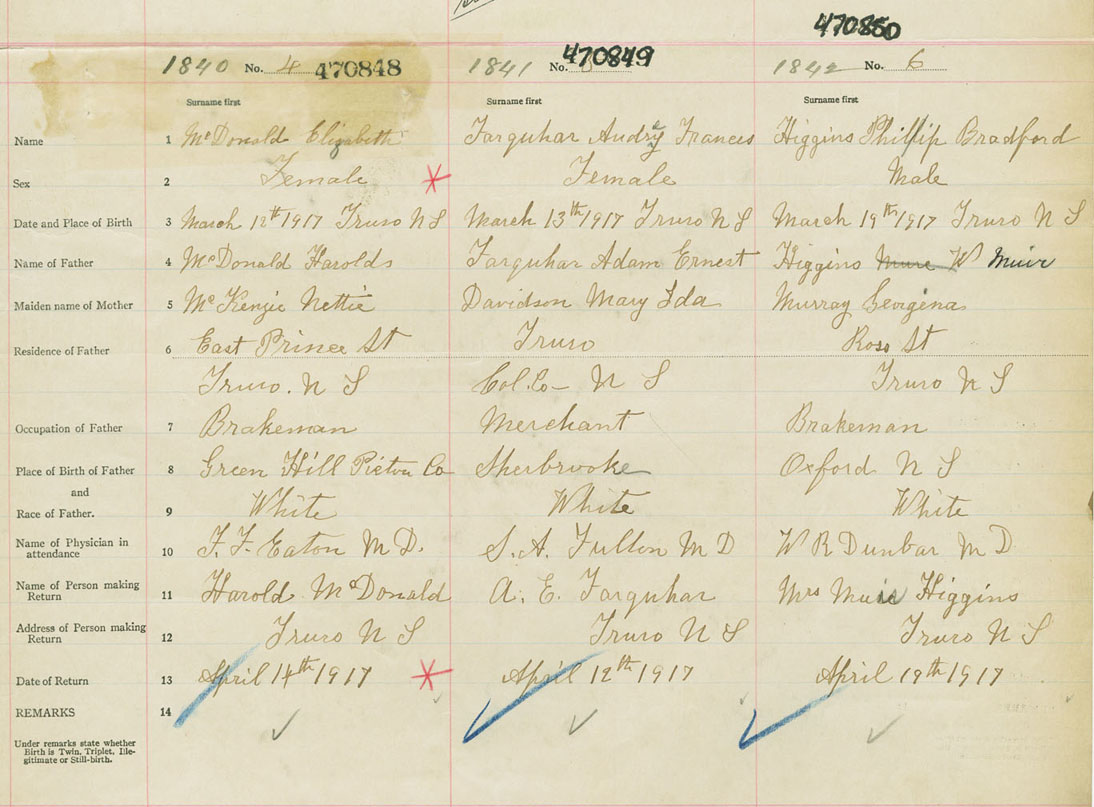 470850
1840 No. 4 470848 1841 No. 5 470849 1842 No. 6
Surname first Surname first Surname first
Name 1 McDonald Elizabeth Farquhar Audry Frances Higgins Phillip Bradford
Sex 2 Female * Female Male
Date and Place of Birth 3 March 12th 1917 Truro N S March 13th 1917 Truro N S March 19th 1917 Truro N S
Name of Father 4 McDonald Harolds Farquhar Adam Ernest Higgins W Muir
Maiden name of Mother 5 McKenzie Nettie Davidson Mary Ida Murray Georgina
Residence of Father 6 East Prince St Truro Ross St
Truro. N S Col. Co— N S Truro N S
Occupation of Father 7 Brakeman Merchant Brakeman
Place of Birth of Father 8 Green Hill Pictou Co Sherbrooke Oxford N S
and
Race of Father. 9 White White White
Name of Physician in
attendance 10 F. F. Eaton M D. S. A. Fulton M D W R Dunbar M D
Name of Person making
Return 11 Harold McDonald A. E. Farquhar Mrs Muir Higgins
Address of Person making
Return 12 Truro N S Truro N S Truro N S
Date of Return 13 April 14th 1917 * April 12th 1917 April 19th 1917
REMARKS 14
Under remarks state whether
Birth is Twin, Triplet, Ille-
gitimate or Still-birth.